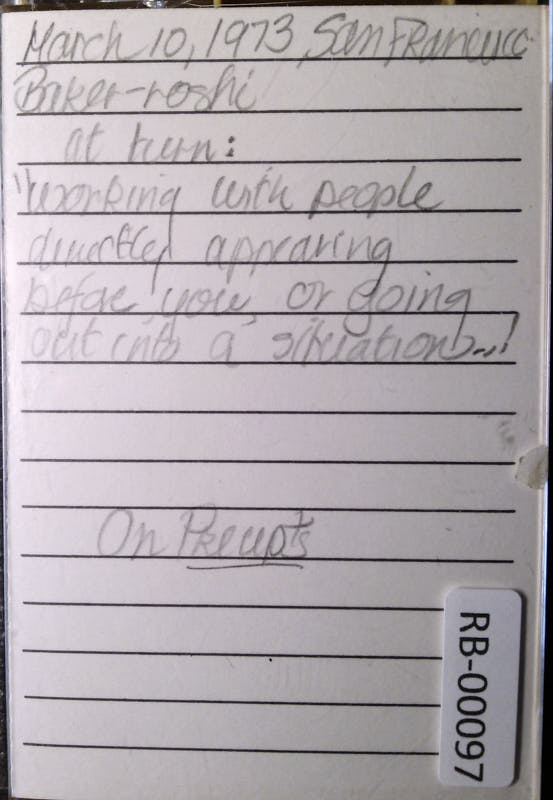 March 10, 1973 San Francisco
Baker-roshi
at turn:
"working with people
directly appearing
before you, or going
out into a situation...!
On Precepts
RB-00097